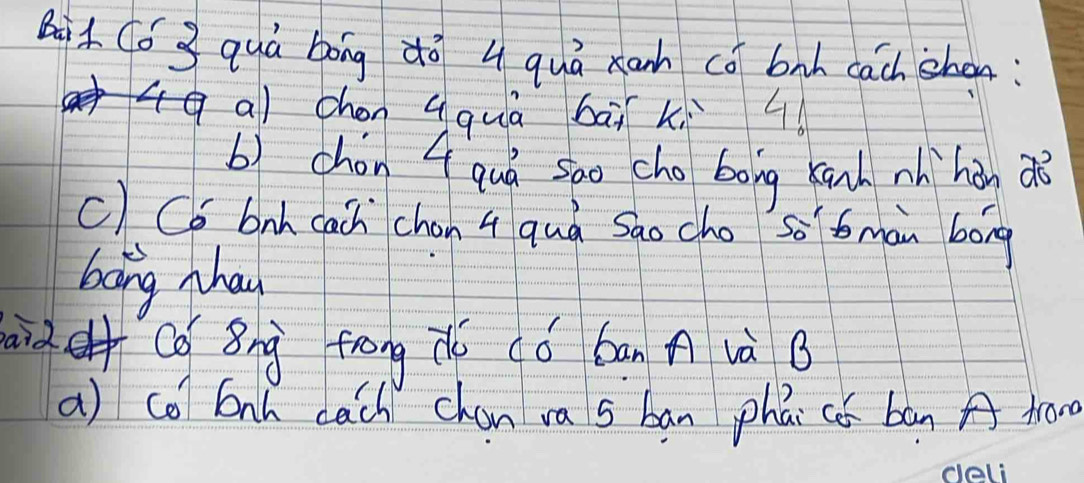 Bài 1 Có 3 quả bóng đỏ 4 quả xanh có bnh cách chọn:
a) chọn 4 quả bất kì 4!
b) chọn 4 quả sao cho bóng xanh nh` hơn đỏ
c) Có bnh cách chọn 4 quả sao cho số màu bóng
bằng nhau
Bài 2 Có 8 ng` trong đó có bạn A và B
a) có bnh cách chọn ra 5 bạn phải có bạn A trong
deli